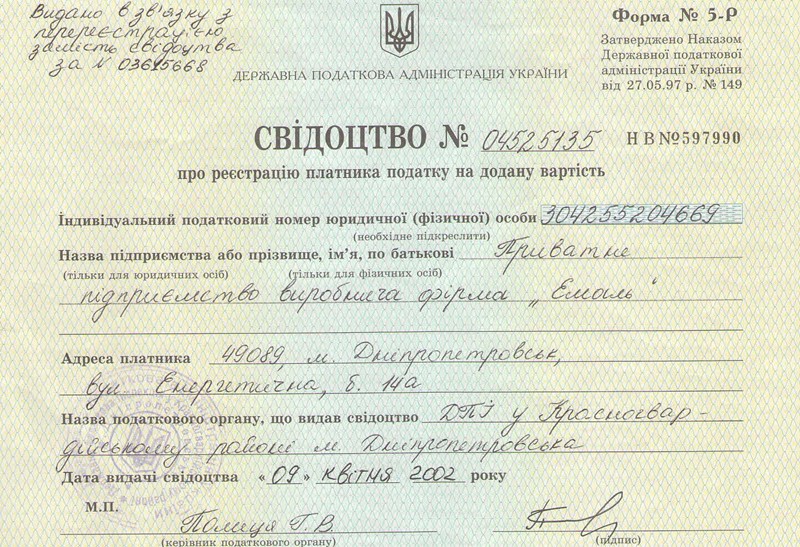 Видано в зв'язку з
перереєстрацією
замість свідоцтва
за N 03615668
Форма № 5-Р
Затверджено Наказом
Державної податкової
адміністрації України
від 27.05.97 р. № 149
ДЕРЖАВНА ПОДАТКОВА АДМІНІСТРАЦІЯ УКРАЇНИ
СВІДОЦТВО № 04525135 НВ№597990
про реєстрацію платника податку на додану вартість
Індивідуальний податковий номер юридичної (фізичної) особи 304255204669
(необхідне підкреслити)
Назва підприємства або прізвище, ім'я, по батькові Приватне
(тільки для юридичних осіб) (тільки для фізичних осіб)
підприємство виробнича фірма „Емаль"
Адреса платника 49089, м. Дніпропетровськ,
вул Енергетична, б. 14а
Назва податкового органу, що видав свідоцтво ДПІ у Красногвар-
дійському районі м. Дніпропетровська
Дата видачі свідоцтва «09» квітня 2002 року
М.П.
Полиця Г.В.
(керівник податкового органу) (підпис)